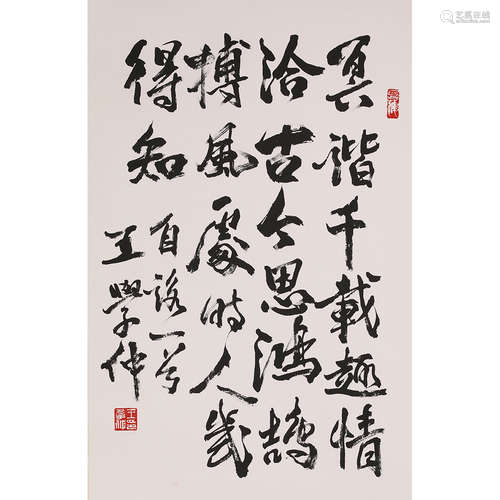 冥谐千載趣情
洽古今思鴻鵠
搏風處時人幾
得知
自詠一首
王學仲